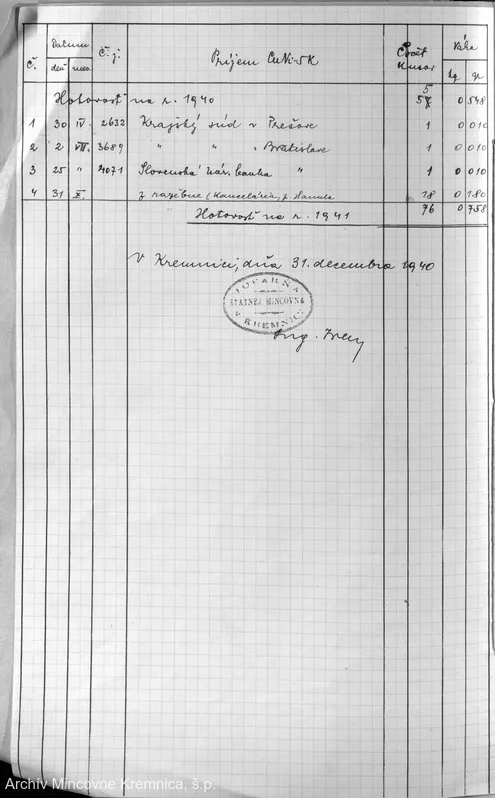 Č. Datum deň mes. Č. j. Príjem CuNi-SK Počet kusov Váha kg gr
Hotovosť na r. 1940 55 0 548
1 30 IV. 2632 Krajský súd v Prešove 1 0 010
2 2 VII. 3689 " " " Bratislave 1 0 010
3 25 " 4071 Slovenská nár. banka " 1 0 010
4 31 X. z razebne (Kancelária, p. Hanula 18 0 180
Hotovosť na r. 1941 76 0 758
V Kremnici, dňa 31. decembra 1940
ŠTÁTNEJ MINCOVNE
V KREMNICI
Ing.
Archív Mincovne Kremnica, š.p.